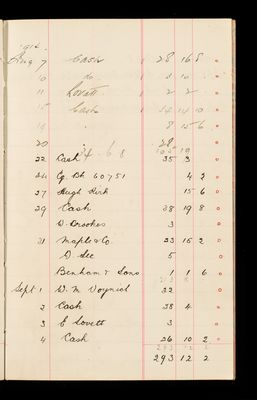 1914
Aug 7 Cash 28 16 8
10 do.
11 Lovett 2 2
15 Cash 14 10
19 " 8 15 6
20 28
22 Cash 35 3
24 Cq. Bk 60751 4 2
27 Hugh Kirk 15 6
29 Cash 38 19 8
D. Brookes 3
31 Maple & Co. 33 15 2
D. Lee 5
Benham & Sons 1 1 6
Sept 1 W. M. Voynich 32
2 Cash 38 4
3 E Lovett 3
4 Cash 26 10 2
293 12 2
293 12 2